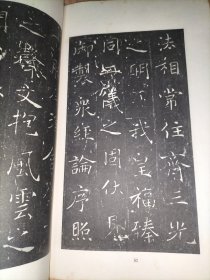 法相常住齊三光
之明我皇福臻
同二儀之固伏見
御製衆經論序照
之聲文抱風雲之